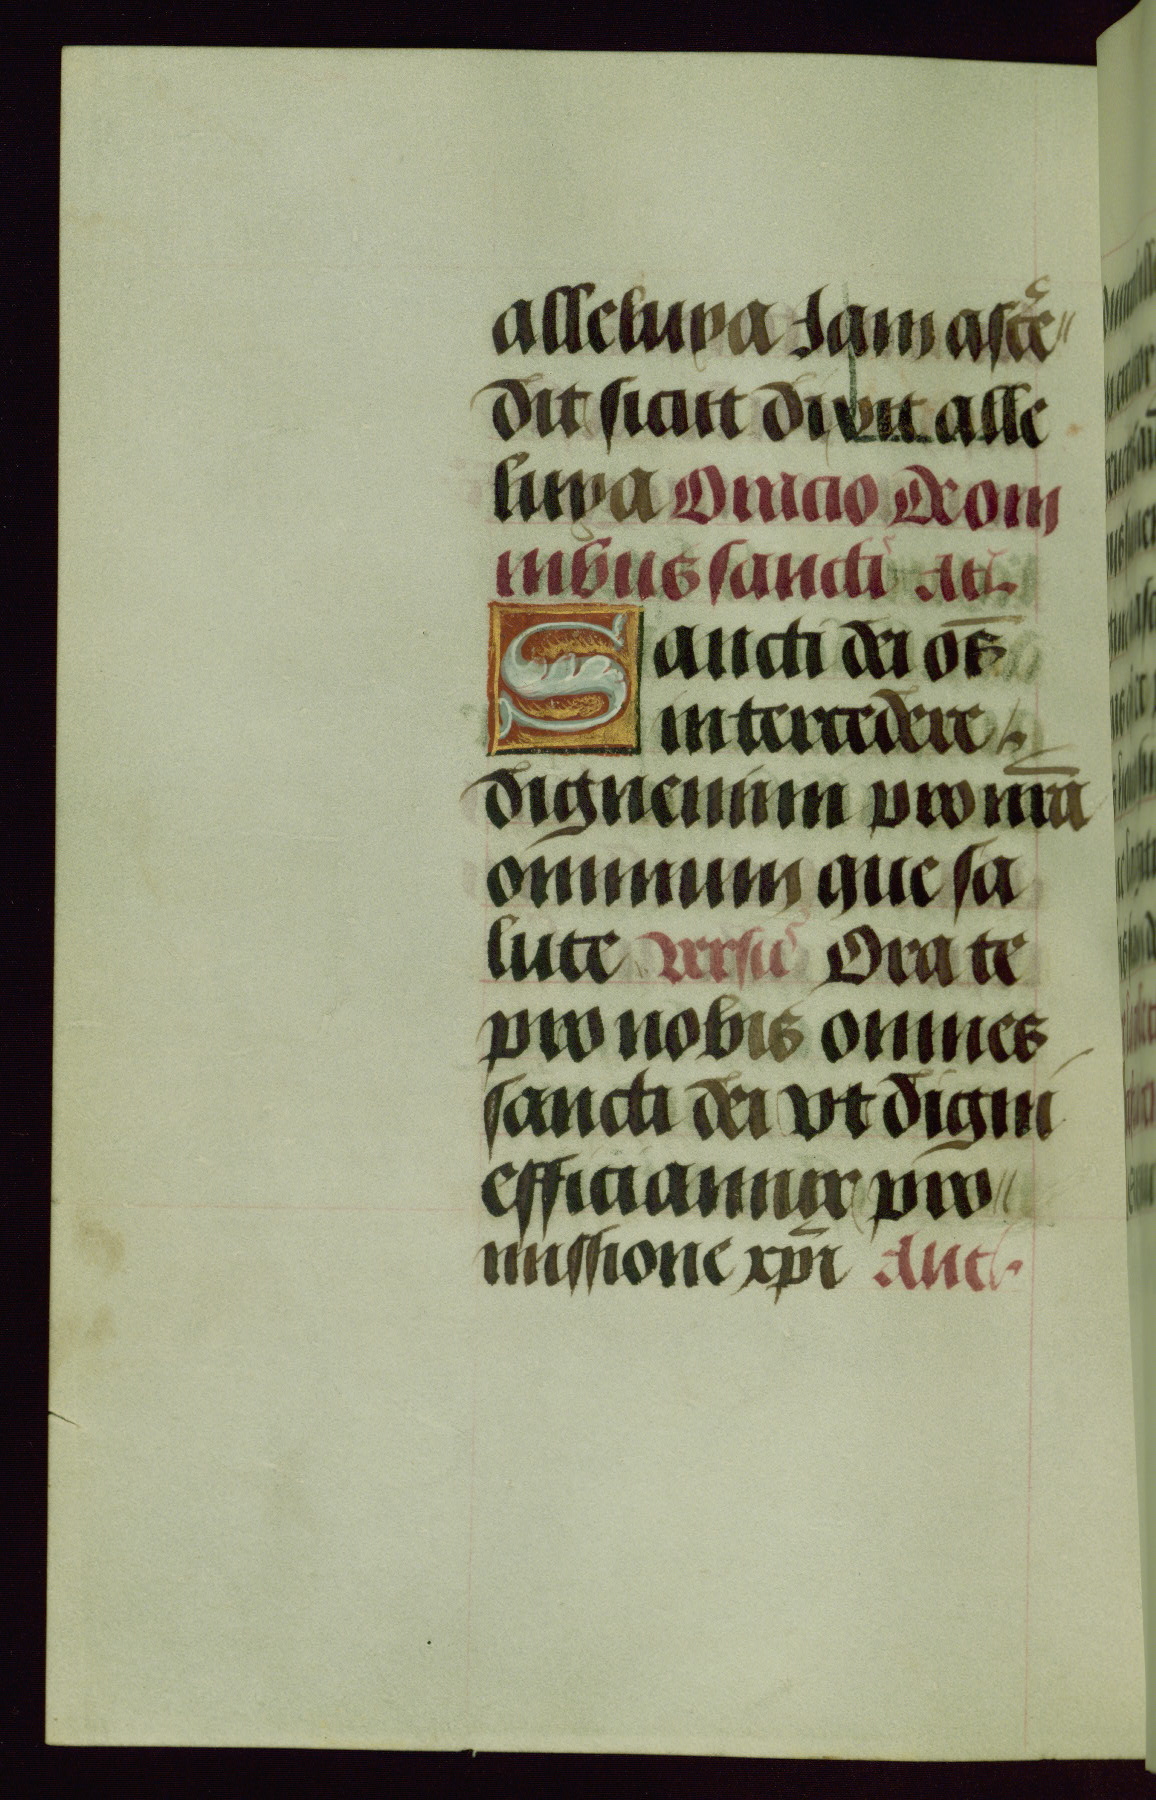 alleluya Jam ascē
dit sicut dixit alle
luya Oracio de om
nibus sanctis Añ
Sancti dei oēs
intercedere
dignemini pro nr̄a
omnium que sa
lute versus Orate
pro nobis omnes
sancti dei vt digni
efficiamur pro
missione xp̄i Ant